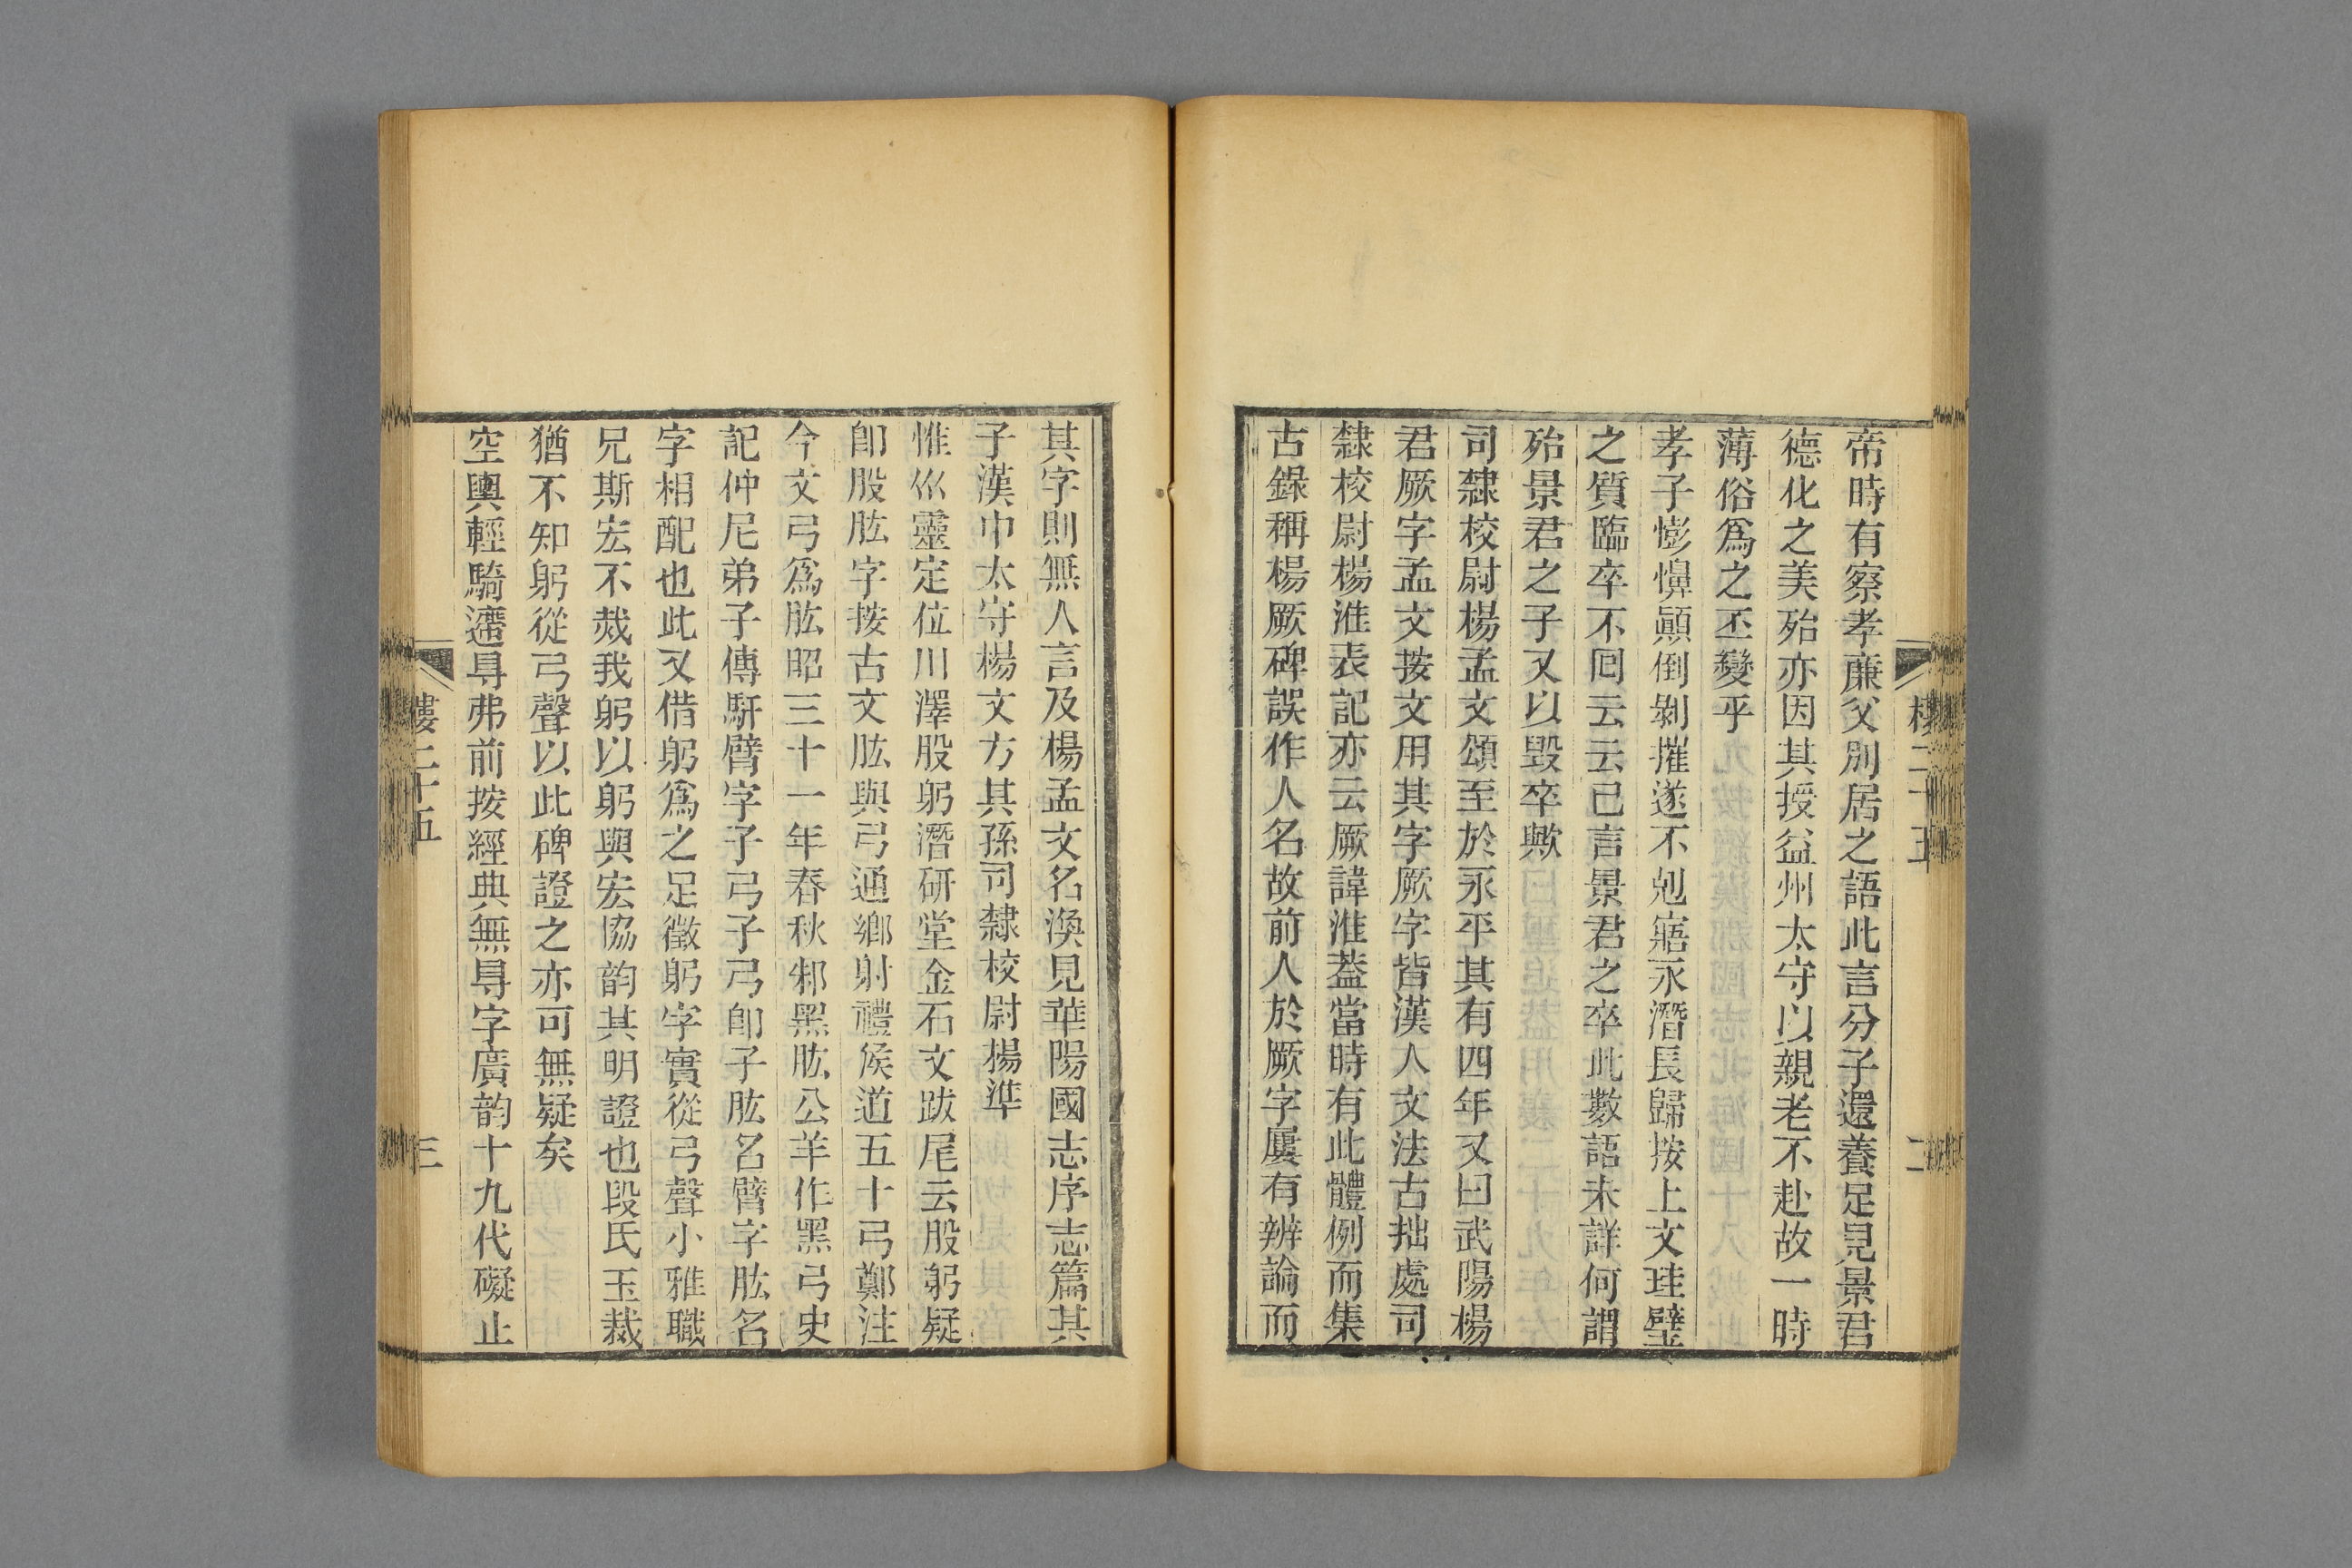 帝時有察孝廉父別居之語此言分子還養足見景君
德化之美殆亦因其授益州太守以親老不赴故一時
薄俗爲之丕變乎
孝子憉懁顚倒剝摧遂不剋寤永潛長歸按上文珪璧
之質臨卒不囘云云已言景君之卒此數語未詳何謂
殆景君之子又以毀卒歟
司隸校尉楊孟文頌至於永平其有四年又曰武陽楊
君厥字孟文按文用其字厥字皆漢人文法古拙處司
隸校尉楊淮表記亦云厥諱淮葢當時有此體例而集
古錄稱楊厥碑誤作人名故前人於厥字屢有辨論而
樓二十五
二
其字則無人言及楊孟文名渙見華陽國志序志篇其
子漢中太守楊文方其孫司隸校尉楊準
惟巛靈定位川澤股躬潛研堂金石文跋尾云股躬疑
卽股肱字按古文肱與弓通鄉射禮侯道五十弓鄭注
今文弓爲肱昭三十一年春秋邾黑肱公羊作黑弓史
記仲尼弟子傳馯臂字子弓子弓卽子肱名臂字肱名
字相配也此又借躬爲之足徵躬字實從弓聲小雅職
兄斯宏不烖我躬以躬與宏協韵其明證也段氏玉裁
猶不知躬從弓聲以此碑證之亦可無疑矣
空輿輕騎遰㝵弗前按經典無㝵字廣韵十九代礙止
樓二十五
三